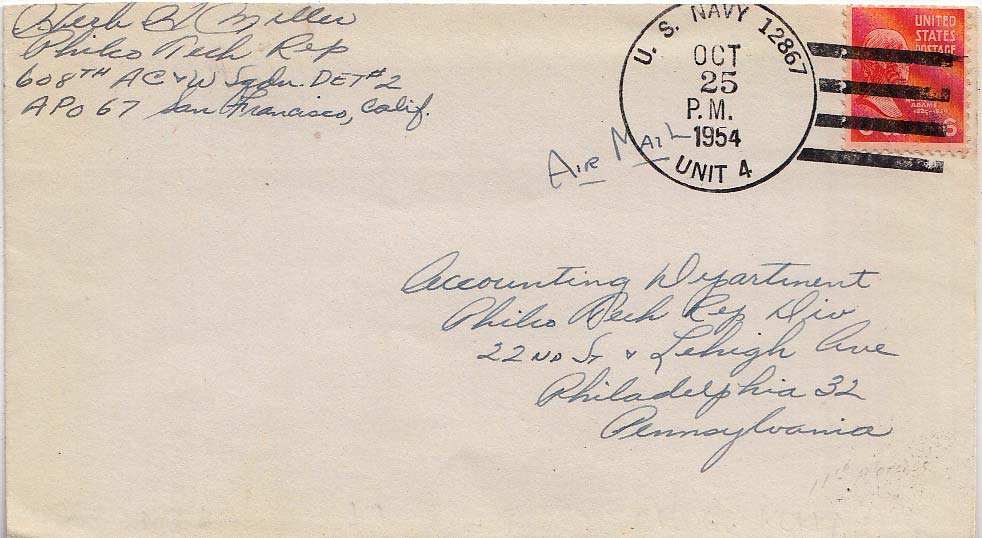 Hugh G Miller
Philco Tech Rep
608TH AC & W Sqdn. DET #2
APO 67 San Francisco, Calif.
U. S. NAVY 12867
OCT
25
P.M.
1954
UNIT 4
UNITED
STATES
POSTAGE
ADAMS
6
Air Mail
Accounting Department
Philco Tech Rep Div
22ND St & Lehigh Ave
Philadelphia 32
Pennsylvania